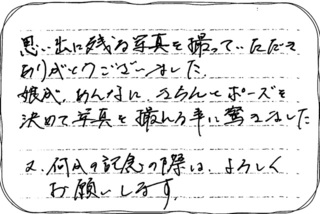 思い出に残る写真を撮っていただき
ありがとうございました
娘が、あんなに、きちんとポーズを
決めて写真を撮れる事に驚きました
又、何かの記念の際は、よろしく
お願いします。